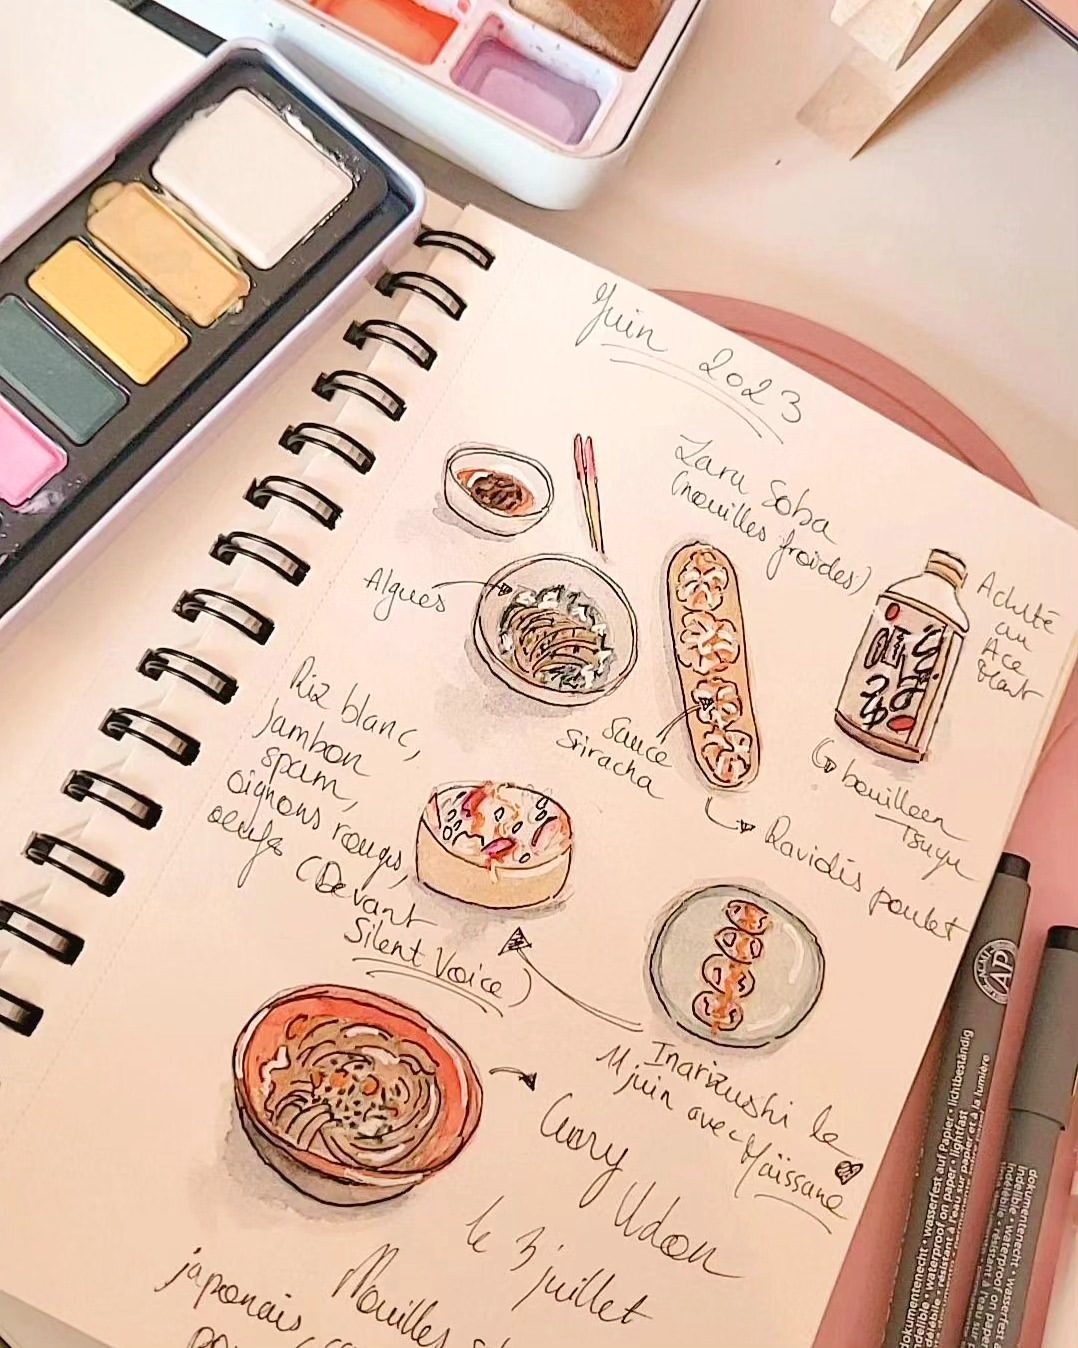 Juin 2023
Zaru Soba
(nouilles froides)
Algues
Acheté
au
Ace
Mart
Sauce
Sriracha
bouillon
Tsuyu
Raviolis poulet
Riz blanc,
jambon
spam,
oignons rouges,
oeufs (Devant
Silent Voice)
Inarizushi le
11 juin avec Maïssane
Curry Udon
le 3 juillet
Nouilles
japonais
AP
dokumentenecht • wasserfest auf Papier • lichtbeständig
indelible • waterproof on paper • lightfast